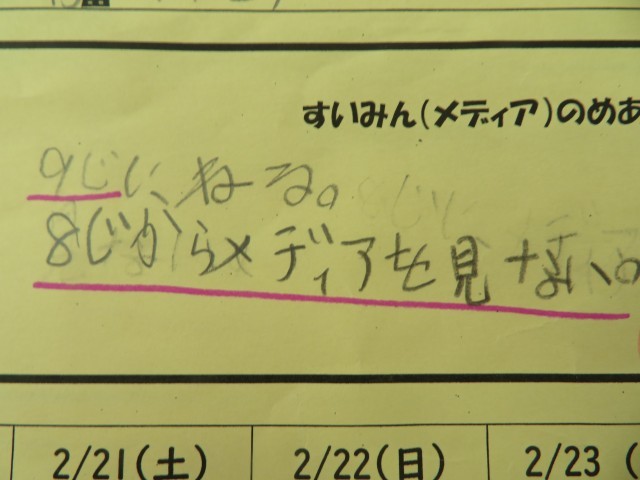 すいみん(メディア)のめあ
9じに、ねる。
8じからメディアを見ない。
2/21(土) 2/22(日) 2/23(